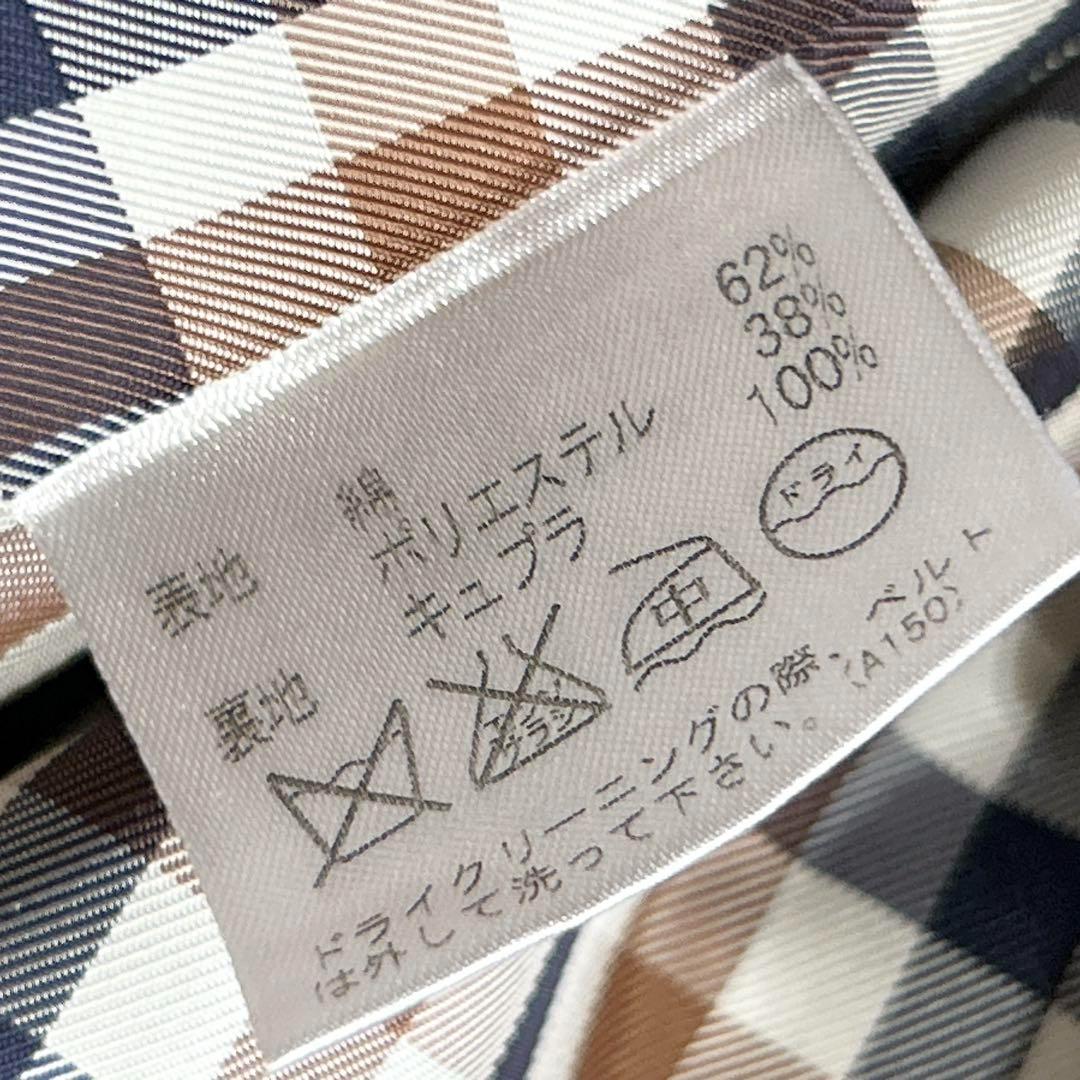 表地 綿 62%
ポリエステル 38%
裏地 キュプラ 100%
エンソ サラシ 中 ドライ
ドライクリーニングの際、ベルト
は外して洗って下さい。(A150)